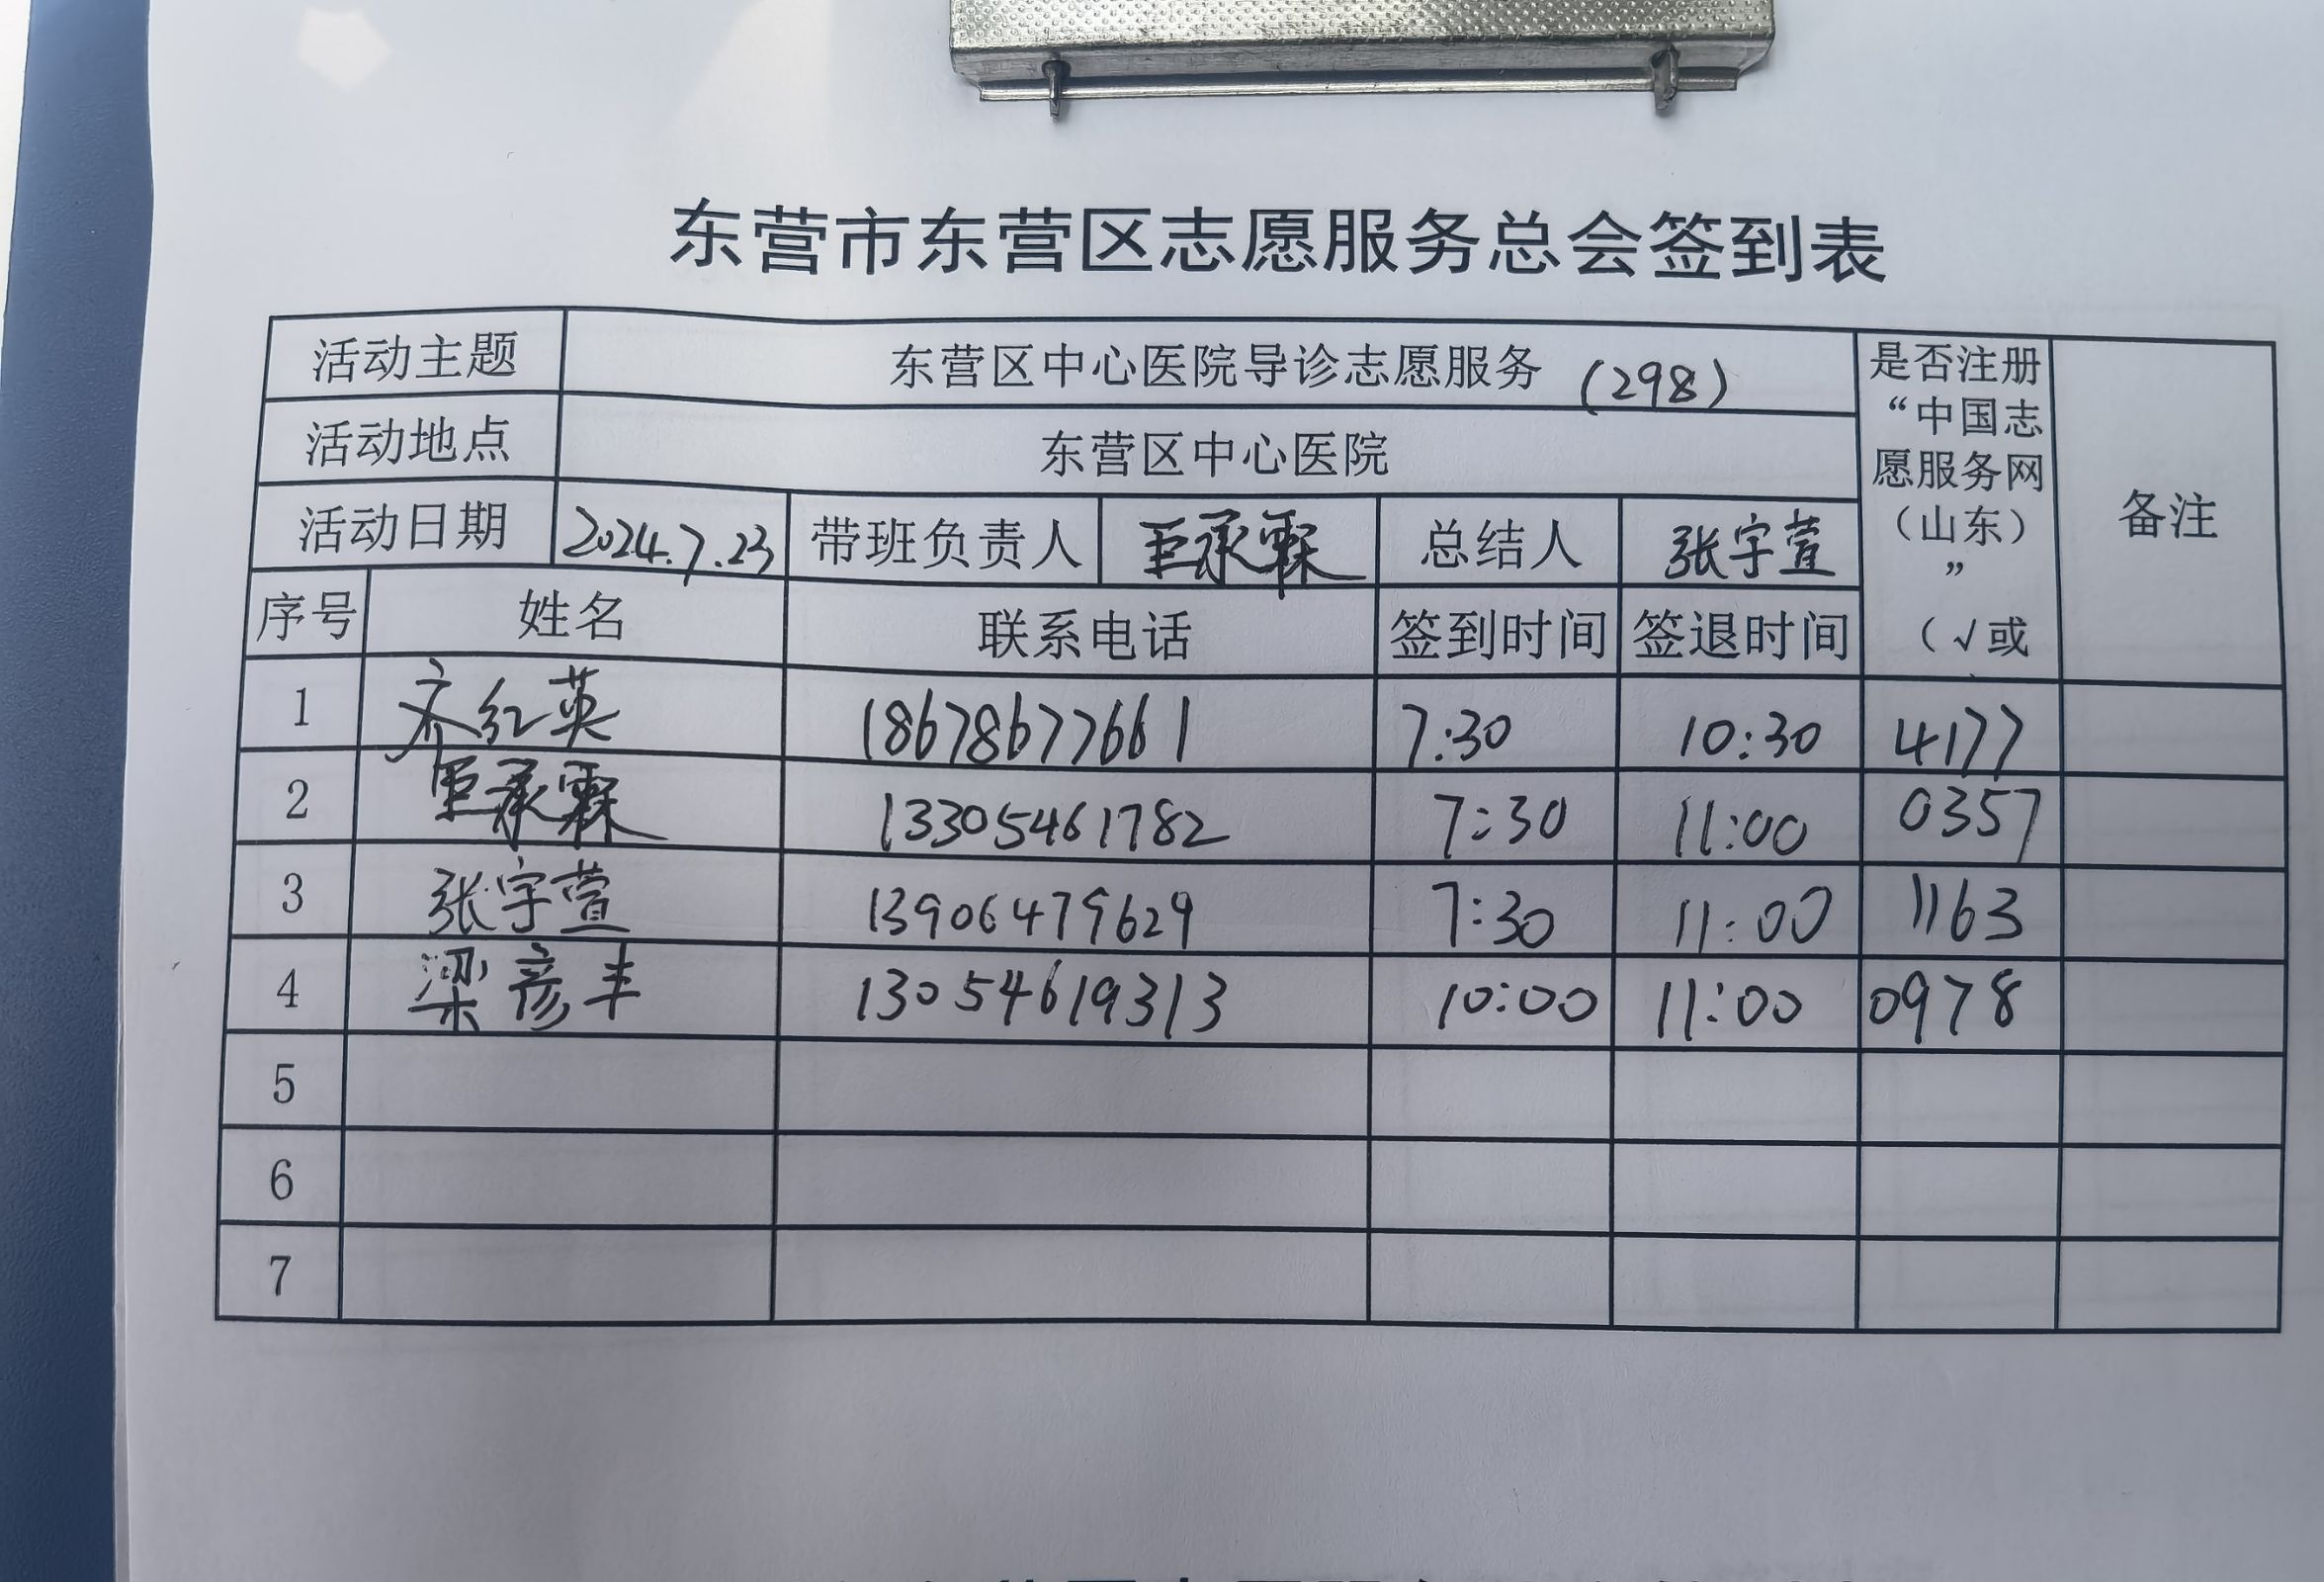 东营市东营区志愿服务总会签到表
活动主题 东营区中心医院导诊志愿服务 (298)
是否注册
“中国志
愿服务网
（山东）
”
（√或
备注
活动地点 东营区中心医院
活动日期 2024.7.23 带班负责人 巨承霖 总结人 张宇萱
序号 姓名 联系电话 签到时间 签退时间
1 齐红英 18678677661 7:30 10:30 4177
2 巨承霖 13305461782 7:30 11:00 0357
3 张宇萱 13906479629 7:30 11:00 1163
4 梁彦丰 13054619313 10:00 11:00 0978
5
6
7